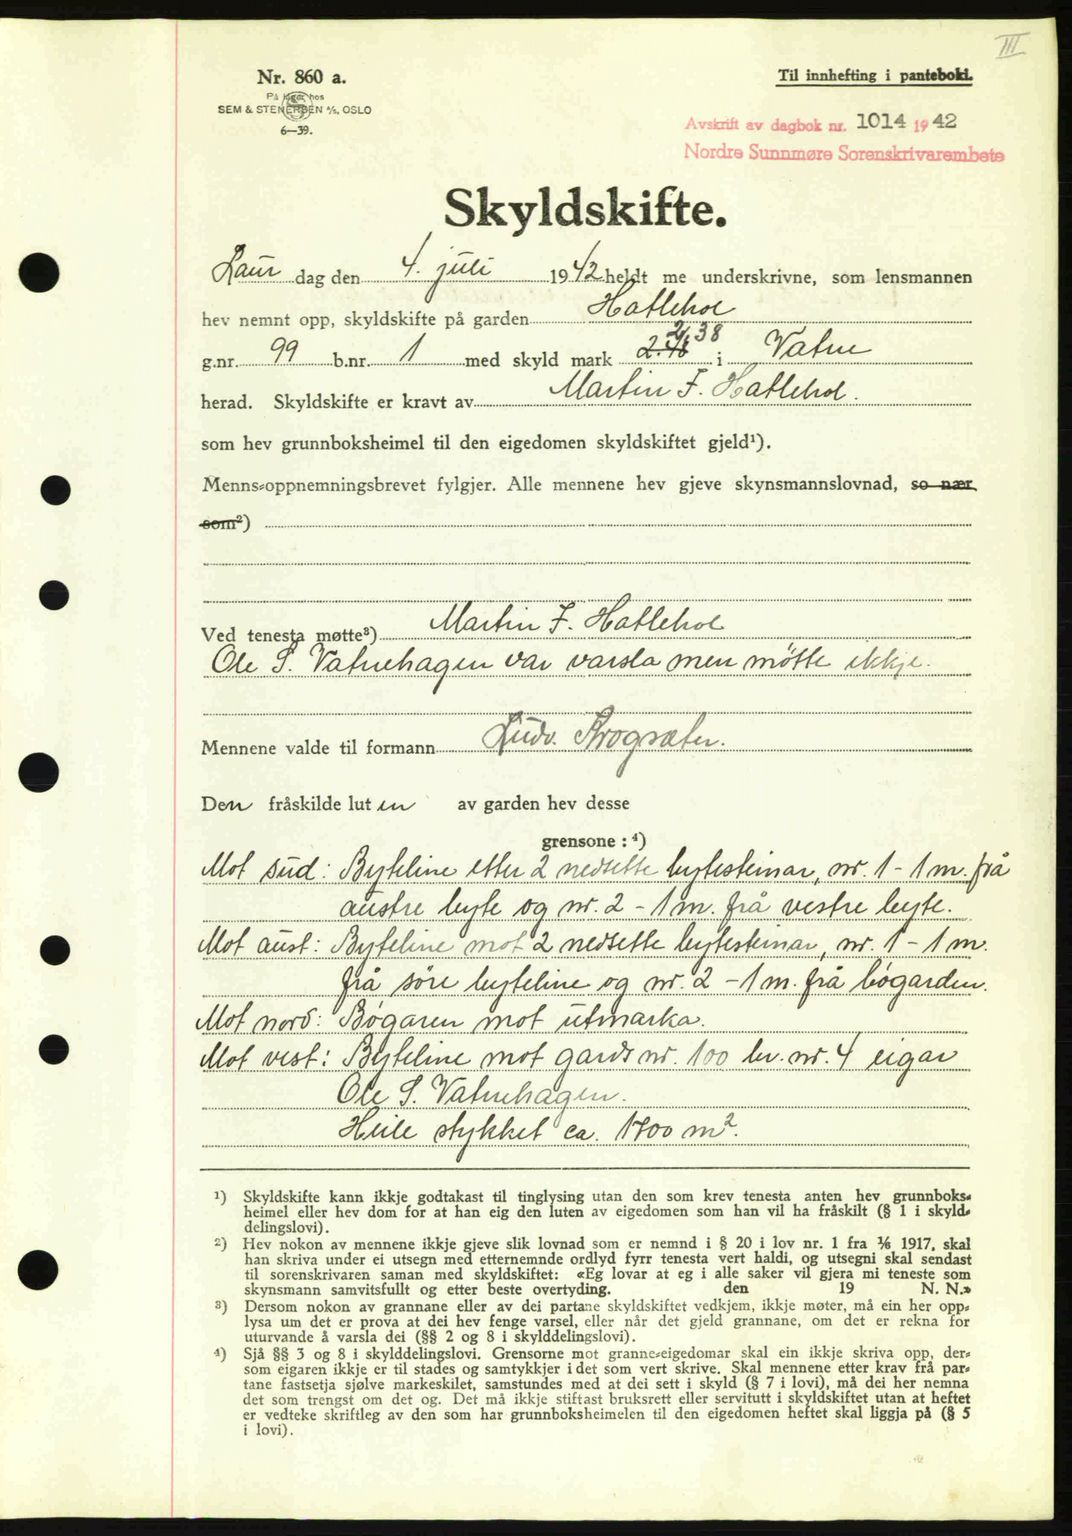 III
Nr. 860 a.
På lager hos
SEM & STENERSEN A/S, OSLO
6—39.
Til innhefting i pantebok.
Avskrift av dagbok nr. 1014 1942
Nordre Sunnmøre Sorenskrivarembete
Skyldskifte.
Laur dag den 4. juli 1942 heldt me underskrivne, som lensmannen
hev nemnt opp, skyldskifte på garden Hatlehol
g.nr. 99 b.nr. 1 med skyld mark 2.38 i Vatne
herad. Skyldskifte er kravt av Martin F. Hatlehol.
som hev grunnboksheimel til den eigedomen skyldskiftet gjeld¹).
Menns-oppnemningsbrevet fylgjer. Alle mennene hev gjeve skynsmannslovnad, so nær
som²)
Ved tenesta møtte³) Martin F. Hatlehol
Ole S. Vatnehagen var varsla men møtte ikkje.
Mennene valde til formann Ludv. Krogsæter.
Den fråskilde luten av garden hev desse
grensone : ⁴)
Mot sud: Byteline etter 2 nedsette bytesteinar, nr. 1 - 1 m. frå
austre byte og nr. 2 - 1 m. frå vestre byte.
Mot aust: Byteline mot 2 nedsette bytesteinar, nr. 1 - 1 m.
frå söre byteline og nr. 2 - 1 m. frå bögarden.
Mot nord: Bögaren mot utmarka.
Mot vest: Byteline mot gards nr. 100 br. nr. 4 eigar
Ole S. Vatnehagen.
Heile stykket ca. 1700 m².
¹) Skyldskifte kann ikkje godtakast til tinglysing utan den som krev tenesta anten hev grunnboks-
heimel eller hev dom for at han eig den luten av eigedomen som han vil ha fråskilt (§ 1 i skyld-
delingslovi).
²) Hev nokon av mennene ikkje gjeve slik lovnad som er nemnd i § 20 i lov nr. 1 fra 1/6 1917, skal
han skriva under ei utsegn med etternemnde ordlyd fyrr tenesta vert haldi, og utsegni skal sendast
til sorenskrivaren saman med skyldskiftet: «Eg lovar at eg i alle saker vil gjera mi teneste som
skynsmann samvitsfullt og etter beste overtyding. den 19 N. N.»
³) Dersom nokon av grannane eller av dei partane skyldskiftet vedkjem, ikkje møter, må ein her opp-
lysa um det er prova at dei hev fenge varsel, eller når det gjeld grannane, om det er rekna for
uturvande å varsla dei (§§ 2 og 8 i skylddelingslovi).
⁴) Sjå §§ 3 og 8 i skylddelingslovi. Grensorne mot granne-eigedomar skal ein ikkje skriva opp, der-
som eigaren ikkje er til stades og samtykkjer i det som vert skrive. Skal mennene etter krav frå par-
tane fastsetja sjølve markeskilet, samstundes med at dei sett i skyld (§ 7 i lovi), må dei her nemna
det som trengst om det og. Det må ikkje stiftast bruksrett eller servitutt i skyldskiftet utan at heftet
er vedteke skriftleg av den som har grunnboksheimelen til den eigedomen heftet skal liggja på (§ 5
i lovi).